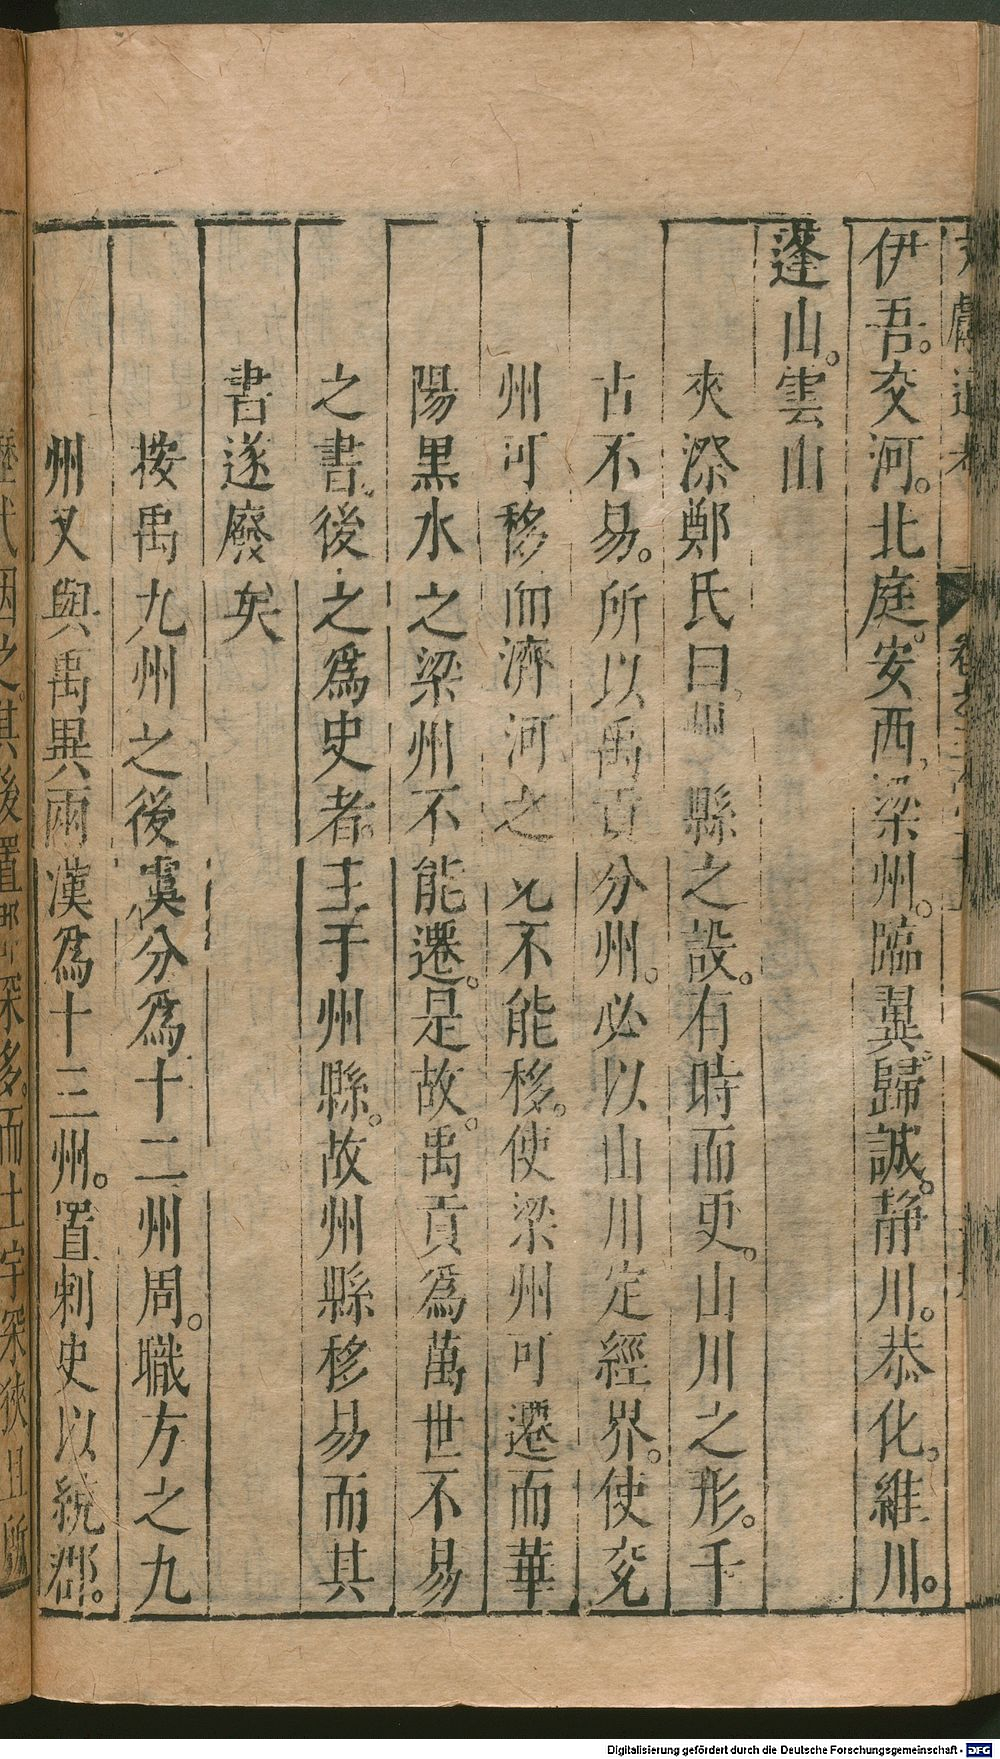 文獻通考 卷
伊吾。交河。北庭。安西。梁州。臨翼。歸誠。静川。恭化。維川。
蓬山。雲山
夾漈鄭氏曰。州縣之設。有時而更。山川之形。千
古不易。所以禹貢分州。必以山川定經界。使兖
州可移而濟河之兖不能移。使梁州可遷而華
陽黒水之梁州不能遷。是故。禹貢爲萬世不易
之書。後之爲史者。主于州縣。故州縣移易而其
書遂廢矣
按禹九州之後虞分爲十二州周。職方之九
州又與禹異兩漢爲十三州。置刺史以統郡。
歷代因之。其後置郡 多。而土宇 狹且所
Digitalisierung gefördert durch die Deutsche Forschungsgemeinschaft - DFG